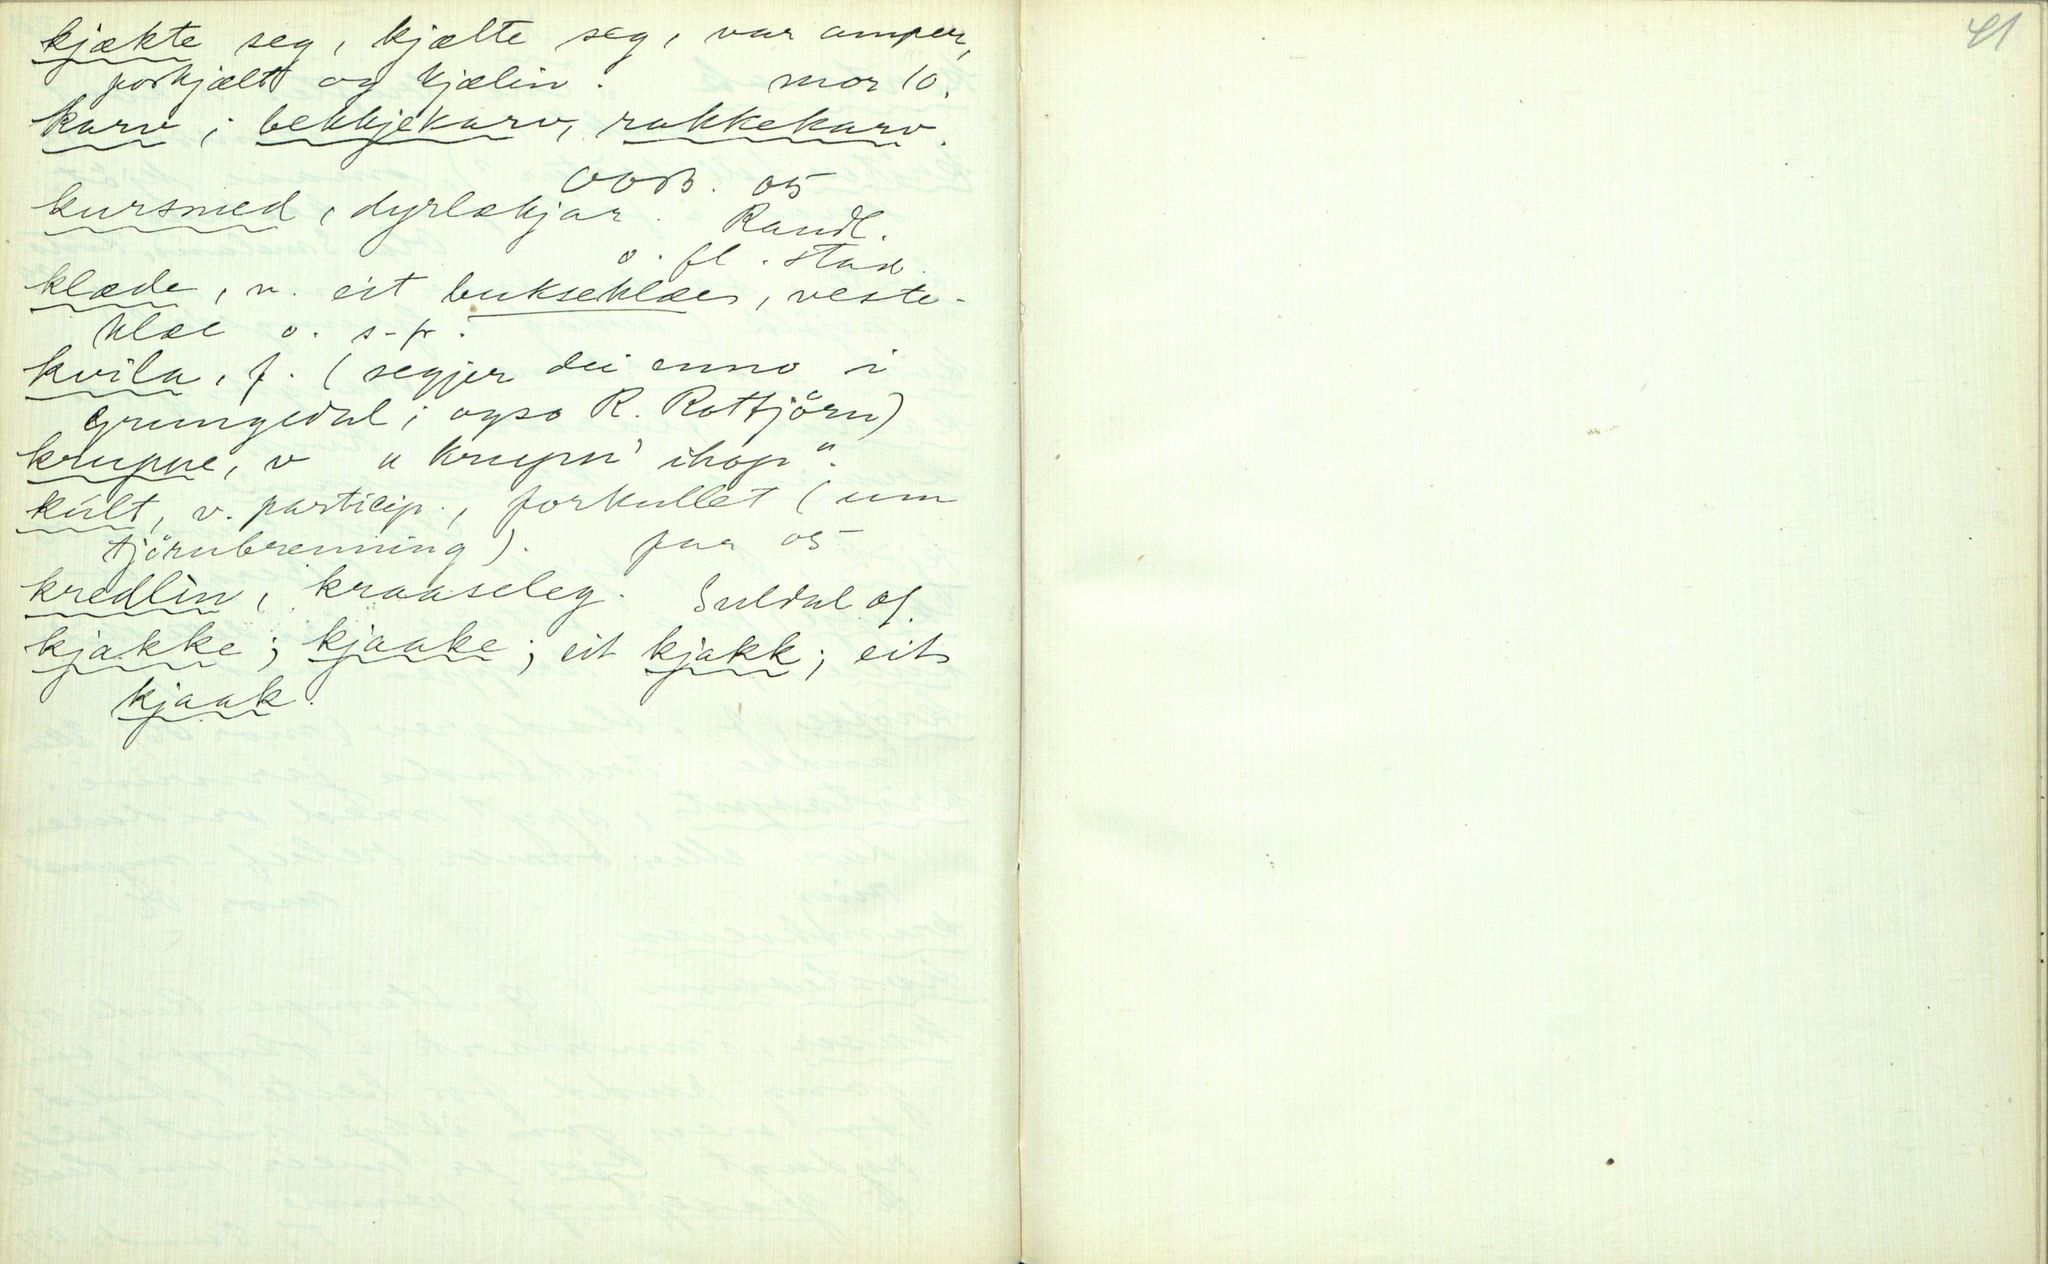 kjækte seg, kjælte seg, var amper,
forkjælt og kjælin. mor 10.
karv; bekkjekarv, rakkekarv.
OOB. 05
kursmed, dyrlækjar. Randl.
o. fl. stad.
klæde, n. eit bukseklæe, veste-
klæe o. s. fr.
kvila, f. (segjer dei enno i
Grungedal; ogso R. Rottjörn)
kruppe, v "krupn' ihop".
kúlt, v. particip., forkullet (um
tjörubrenning). far 05
kredlin, kraaseleg. Suldal 05
kjakke; kjaake; eit kjakk; eit
kjaak.
41